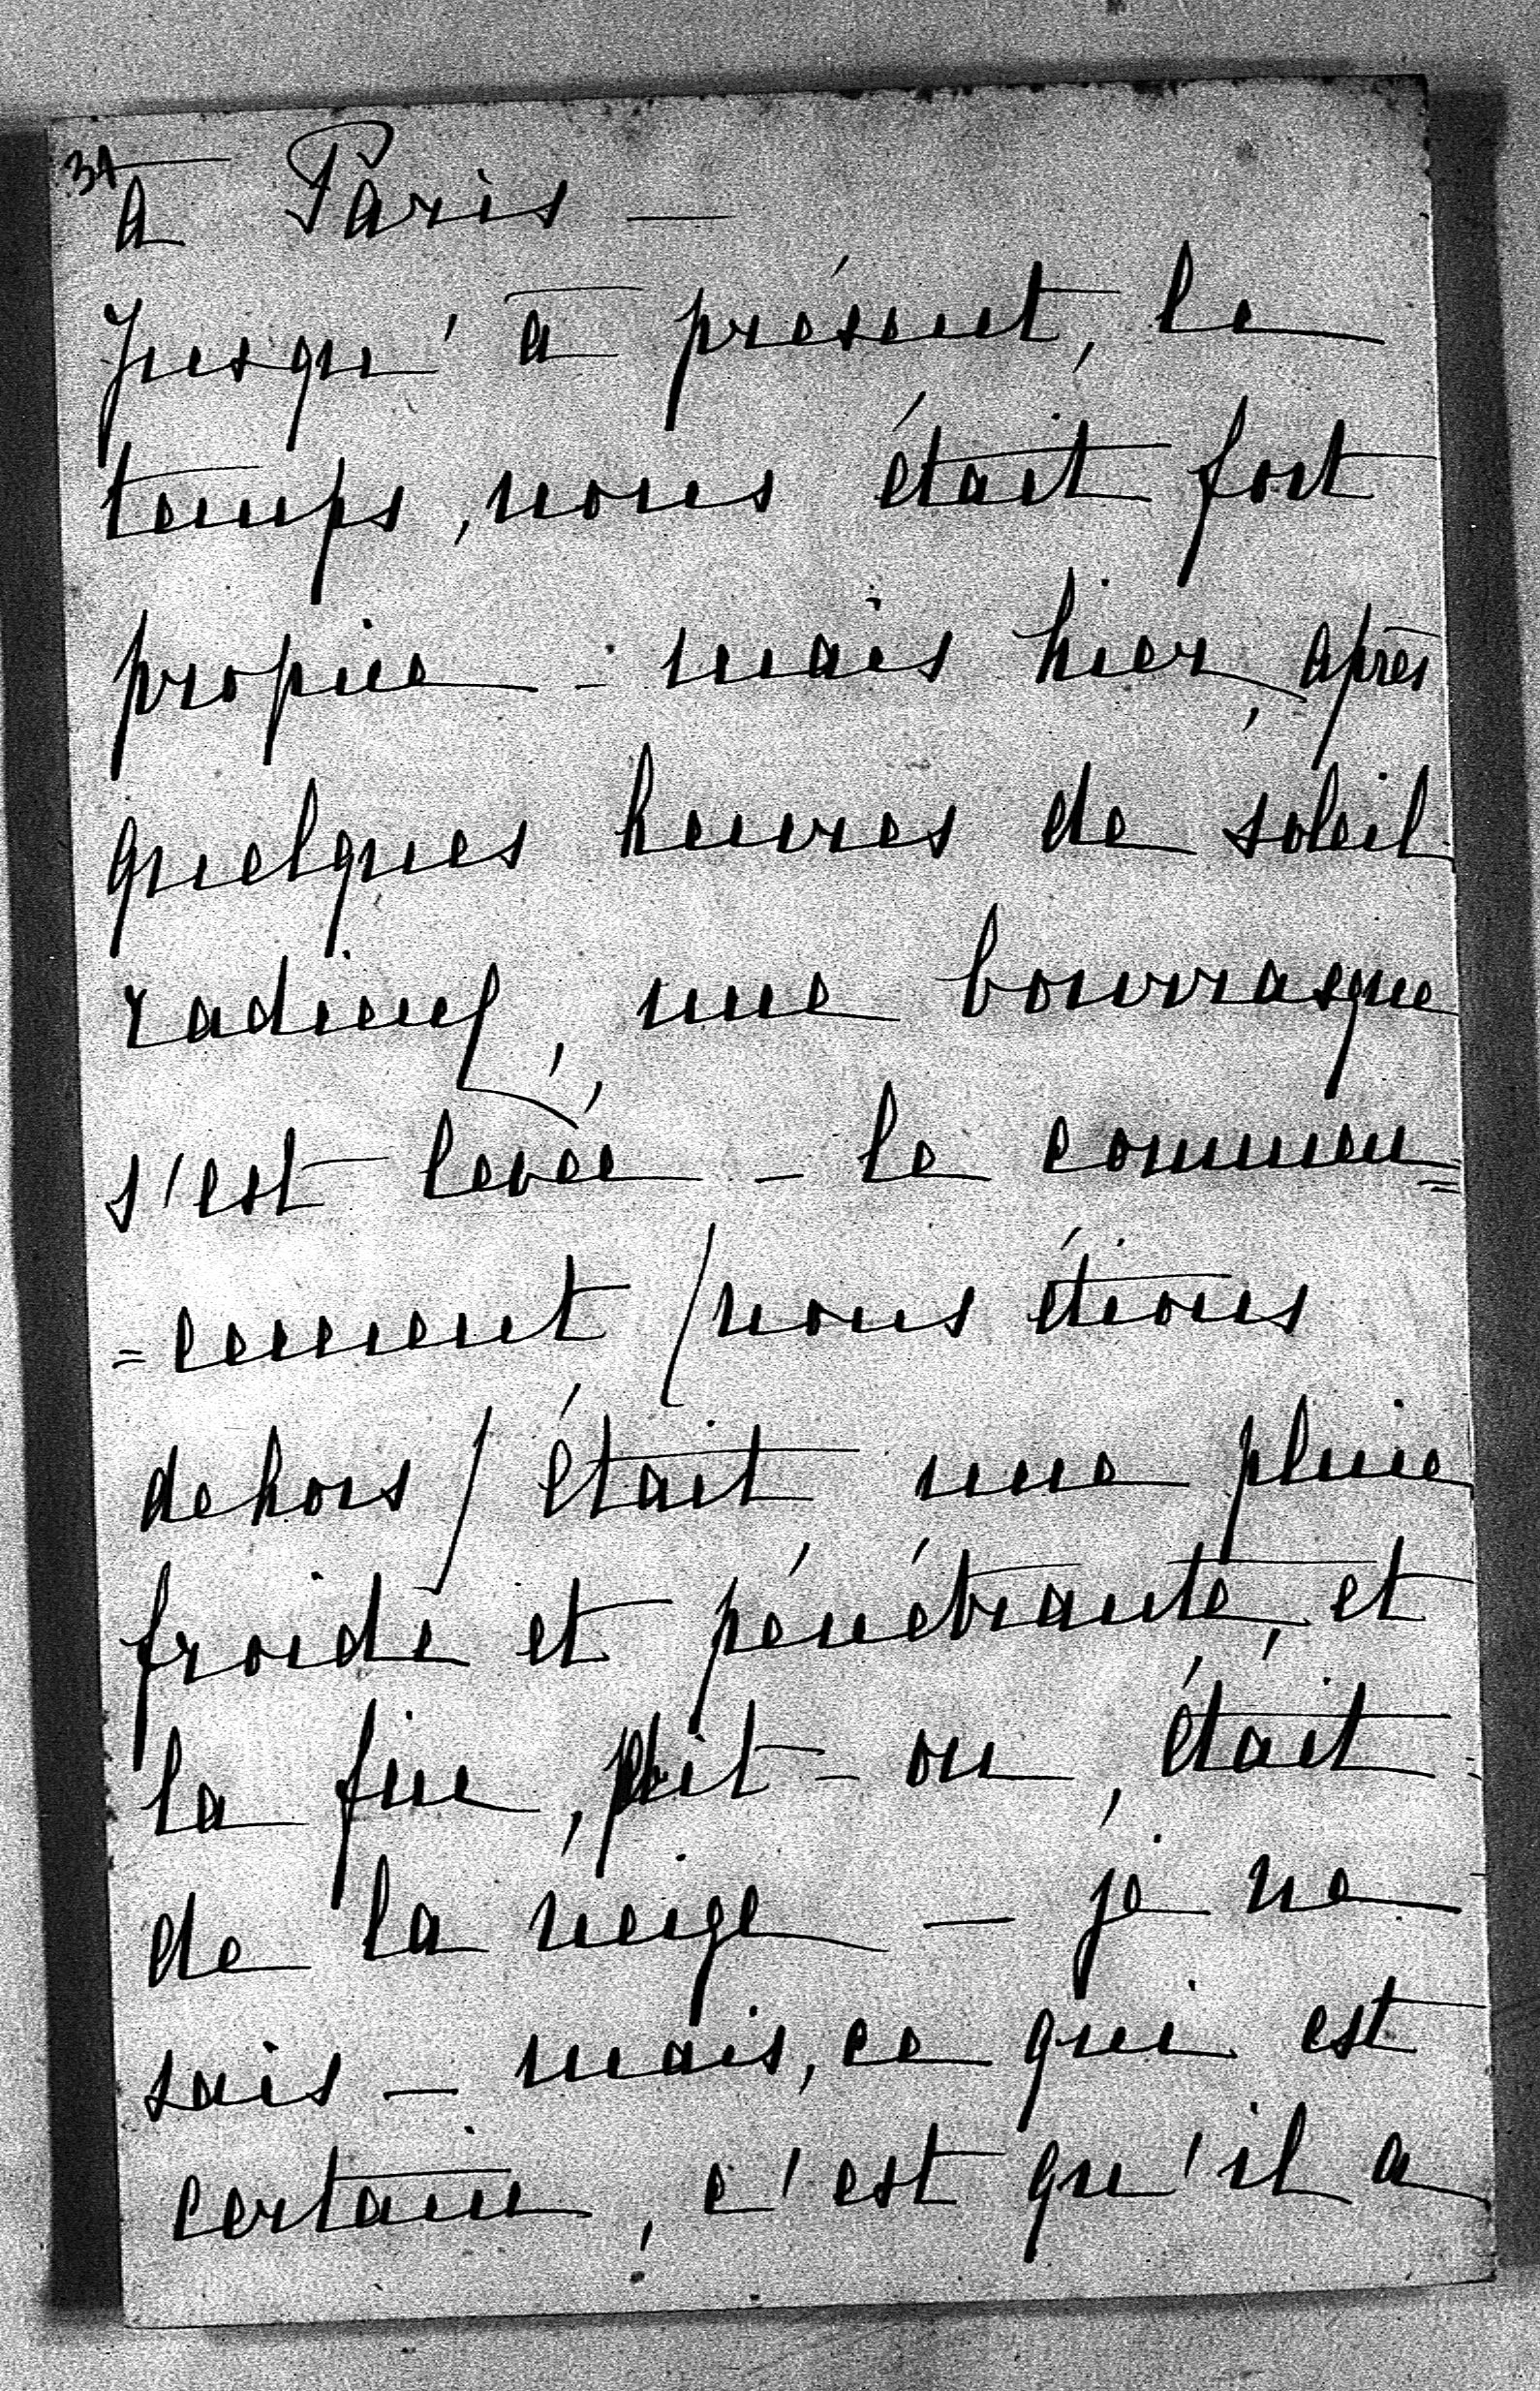 34
à Paris —
Jusqu'à présent, le
temps, nous était fort
propice - mais hier, après
quelques heures de soleil
radieux, une bourrasque
s'est levée - le commen=
=cement / nous étions
dehors / était une pluie
froide et pénétrante, et
la fin, était
de la neige — je ne
sais — mais, ce qui est
certain, c'est qu'il a